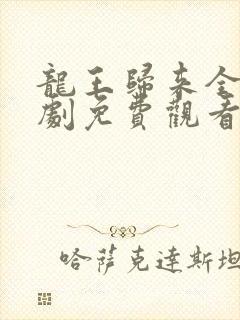 龍王歸來全
劇免費觀看
哈薩克達斯坦